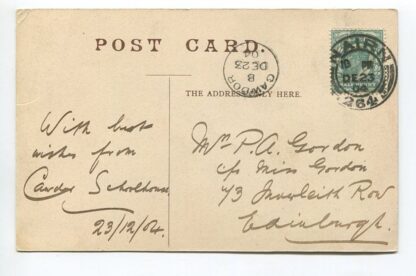 POST CARD.
CAWDOR
8
DE 23
04
NAIRN
DE 23
264
THE ADDRESS ONLY HERE.
With best
wishes from
Cawdor Schoolhouse
23/12/04.
Mr P.A. Gordon
c/o Miss Gordon
43 Inverleith Row
Edinburgh.